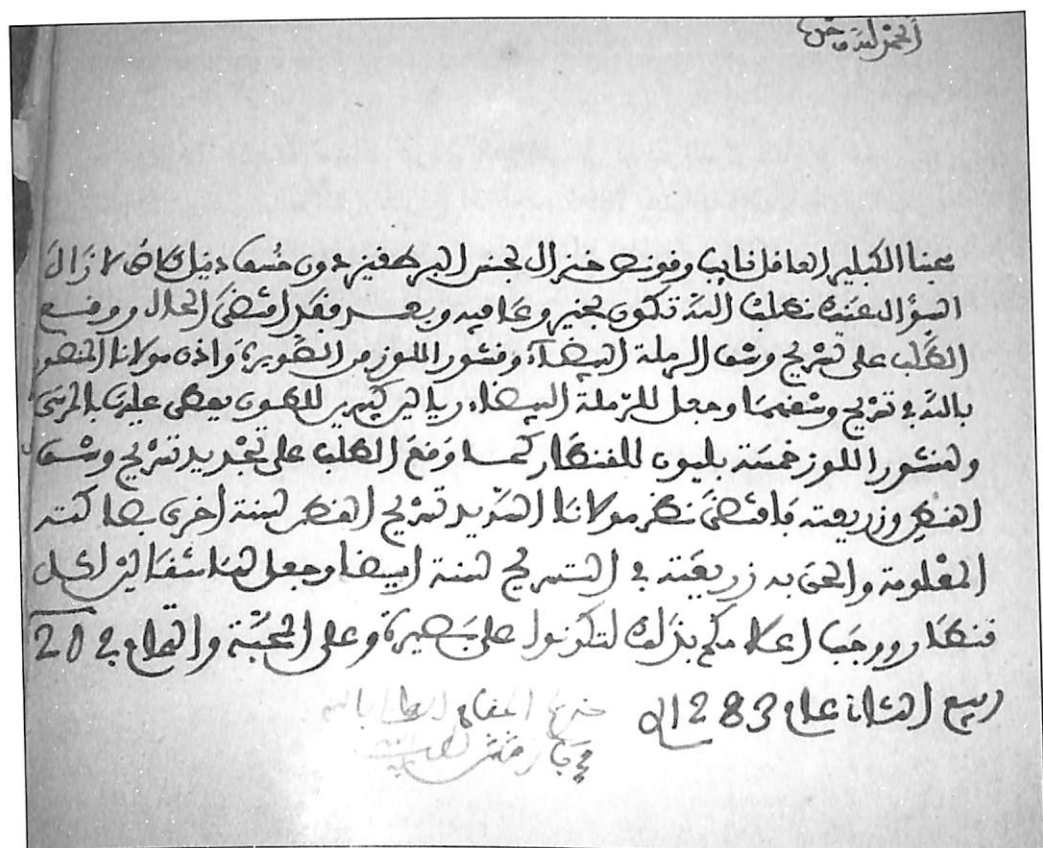 الحمد لله وحده
محبنا الكبلير العاقل نايب وقونصو جنرال لجنس البرطقيز دون خسي دنيل كلاص لا زال
السؤال عنك نطلب الله تكون بخير وعافيه وبعد فقد اقتضى الحال ووقع
الطلب على تسريح وسق الرملة البيضاء وقشور اللوز من الصويرة واذن مولانا المنصور
بالله في تسريح وسقهما وجعل للرملة البيضاء ريالين كبيرين للطون يعطى عليها بالمرسى
ولقشور اللوز خمسة بليون للقنطار كما وقع الطلب على تجديد تسريح وسق
القطن وزريعته فاقتضى نظر مولانا السديد تسريح القطن لسنة اخرى بصاكته
المعلومة والحق به زريعته في التسريح لسنة ايضا وجعل لها مثقالين لكل
قنطار ووجب اعلامكم بذلك لتكونوا على بصيرة وعلى المحبة والتمام في 20
ربيع الثاني عام 1283
خديم المقام العالي بالله
محمد بركاش لطف الله به